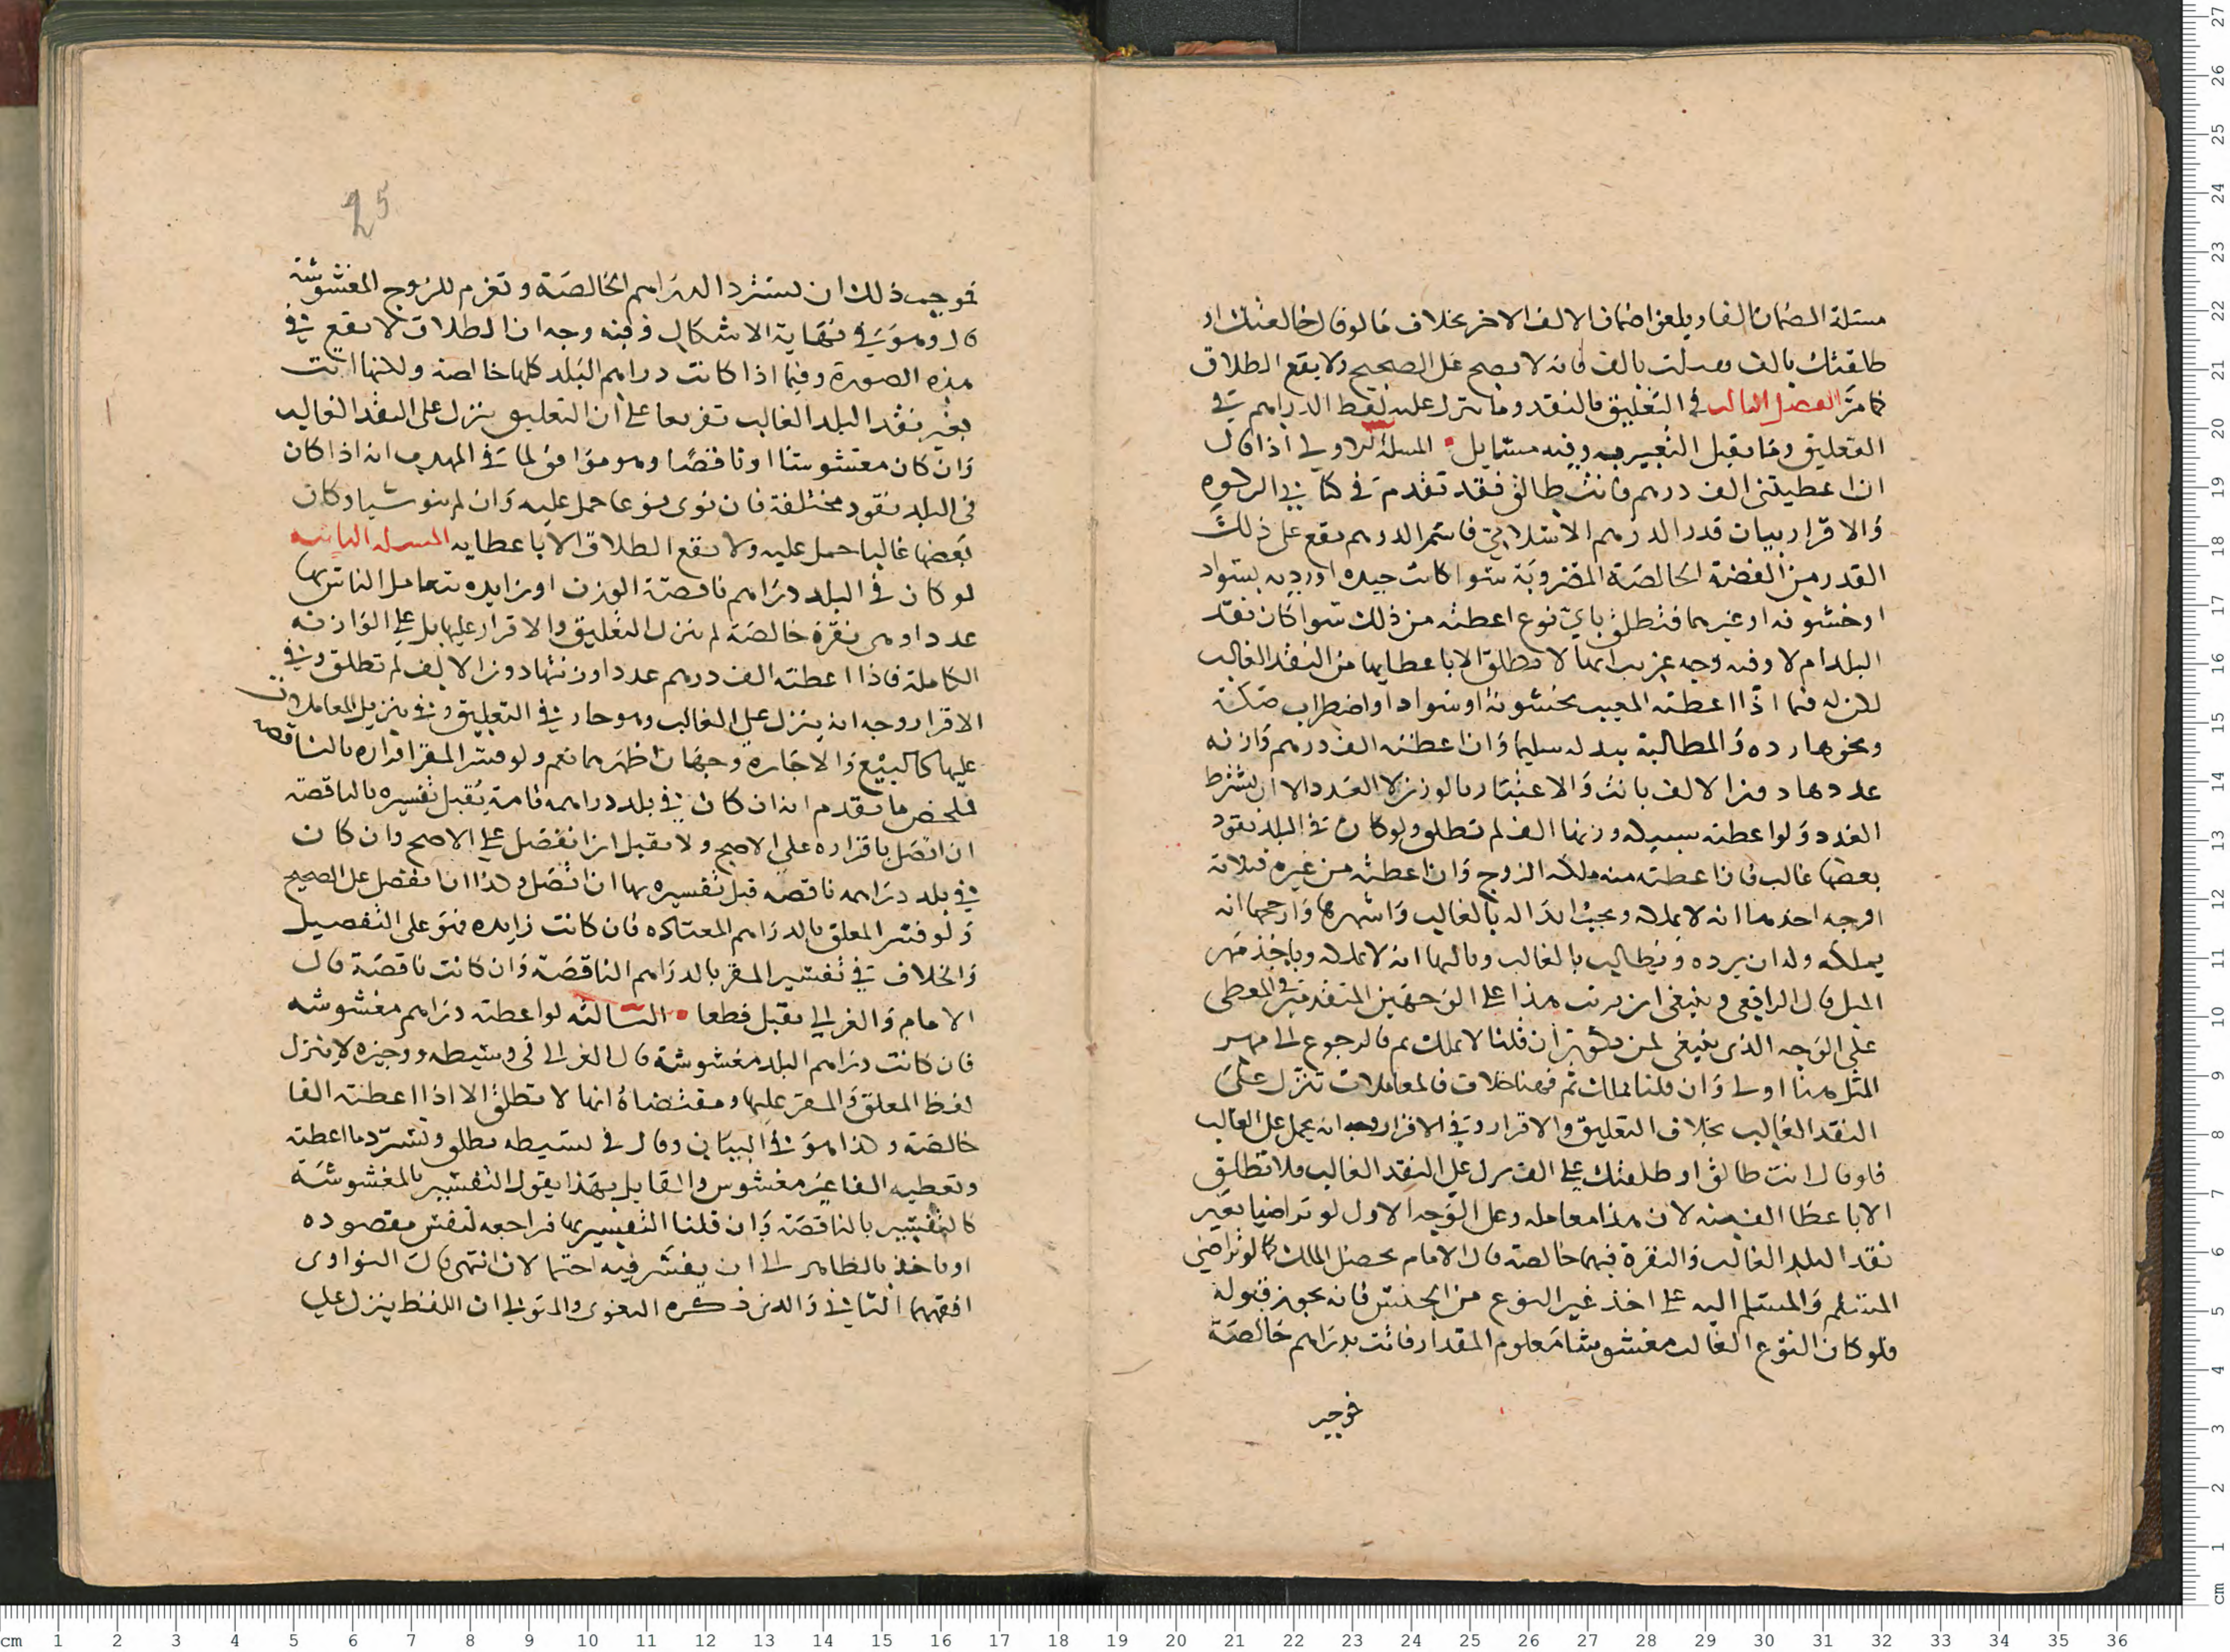 مسئلة الضمان الفا ويلغوا ضمان الالف الاخر بخلاف ما لو قال خالعتك او
طلقتك بالف فقبلت بالف فانه لا يصح على الصحيح ولا يقع الطلاق
كما مرّ الفصل الثالث في التعليق بالنقد وما ينزل عليه لفظ الدراهم في
التعليق وما يقبل التعبير به وفيه مسايل المسئلة الاولى اذا قال
ان اعطيتني الف درهم فانت طالق فقد تقدم في كتابي الزكوة
والاقرار بيان قدر الدرهم الاسلامي فاسم الدرهم يقع على ذلك
القدر من الفضة الخالصة المضروبة سوا كانت جيده او رديه لسواد
او خشونه او غيرهما فتطلق باي نوع اعطته من ذلك سوا كان نقد
البلد ام لا وفيه وجه غريب انها لا تطلق الا باعطايها من النقد الغالب
لكن له فيما اذا اعطته المعيب بخشونة او سواد او اضطراب سكة
ونحوها رده والمطالبة ببدله سليما وان اعطته الف درهم وازنه
عددها دون الالف بانت والاعتبار بالوزن لا العدد الا ان يشترط
العدد ولو اعطته سبيكه وزنها الف لم تطلق ولو كان في البلد نقود
بعضها غالب فان اعطته منه ملكه الزوج وان اعطته من غيره فثلاثة
اوجه احدها انه لا يملكه ويجب ابداله بالغالب واشهرها وارجحها انه
يملكه وله ان يرده ويطالب بالغالب وثالثها انه لا يملكه وياخذ مهر
المثل قال الرافعي وينبغي ان يرتب هذا على الوجهين المتقدمين في المعطى
على الوجه الذي ينبغي ان قلنا لا يملك ثم فالرجوع الى مهر
المثل هنا اولى وان قلنا يملك ثم فهنا خلاف فالمعاملات تنزل على
النقد الغالب بخلاف التعليق والاقرار وفي الاقرار وجه انه يحمل على الغالب
فلو قال انت طالق او طلقتك على الف نزل على النقد الغالب فلا تطلق
الا باعطا الف منه لان هذا معامله وعلى الوجه الاول لو تراضيا بغير
نقد البلد الغالب والنقرة فيهما خالصة قال الامام يحصل الملك كما لو تراضي
المسلم والمسلم اليه على اخذ غير النوع من الجنس فانه يجوز قبوله
فلو كان النوع الغالب مغشوشا معلوم المقدار فاتت بدراهم خالصة
فوجب
25
فوجب ذلك ان تسترد الدراهم الخالصة وتغرم للزوج المغشوشة
قال وهو في نهاية الاشكال وفيه وجه ان الطلاق لا يقع في
هذه الصورة وفيما اذا كانت دراهم البلد كلها خالصة ولكنها اتت
بغير نقد البلد الغالب تفريعا على ان التعليق ينزل على النقد الغالب
وان كان مغشوشا او ناقصا وهو موافق لما في المهذب انه اذا كان
في البلد نقود مختلفة فان نوى نوعا حمل عليه وان لم ينو شيا وكان
بعضها غالبا حمل عليه ولا يقع الطلاق الا باعطايه المسئلة الثانية
لو كان في البلد دراهم ناقصة الوزن او زايده يتعامل الناس بها
عددا وهي نقرة خالصة لم ينزل التعليق والاقرار عليها بل على الوازنه
الكاملة فاذا اعطته الف درهم عددا وزنتها دون الالف لم تطلق وفي
الاقرار وجه انه ينزل على الغالب وهو جار في التعليق وفي تنزيل المعاملات
عليها كالبيع والاجاره وجهان اظهرهما نعم ولو فسر المقر اقراره بالناقصه
فلخص ما تقدم انه ان كان في بلد دراهمه تامة يُقبل تفسيره بالناقصة
ان اتصل باقراره على الاصح ولا يقبل ان انفصل على الاصح وان كان
في بلد دراهمه ناقصه قبل تفسيره بها ان اتصل وكذا ان انفصل على الصحيح
ولو فسر المعلق بالدراهم المعتاده فان كانت زايده فهو على التفصيل
والخلاف في تفسير المقر بالدراهم الناقصة وان كانت ناقصة قال
الامام والغزالي يقبل قطعا الثالثه لو اعطته دراهم مغشوشه
فان كانت دراهم البلد مغشوشة قال الغزالي في وسيطه ووجيزه لا ينزل
لفظ المعلق والمقر عليها ومقتضاه انها لا تطلق الا اذا اعطته الفا
خالصة وكذا هو في البيان وقال في بسيطه تطلق وتسترد ما اعطته
وتعطيه الفا غير مغشوش والقايل بهذا يقول التفسير بالمغشوشة
كالتفسير بالناقصة وان قلنا التفسير بها فراجعه لنفس مقصوده
او ناخذ بالظاهر الى ان يفسر فيه احتمالان انتهى قال النواوى
افقههما الثاني والذي ذكره البغوى والمتولي ان اللفظ ينزل على